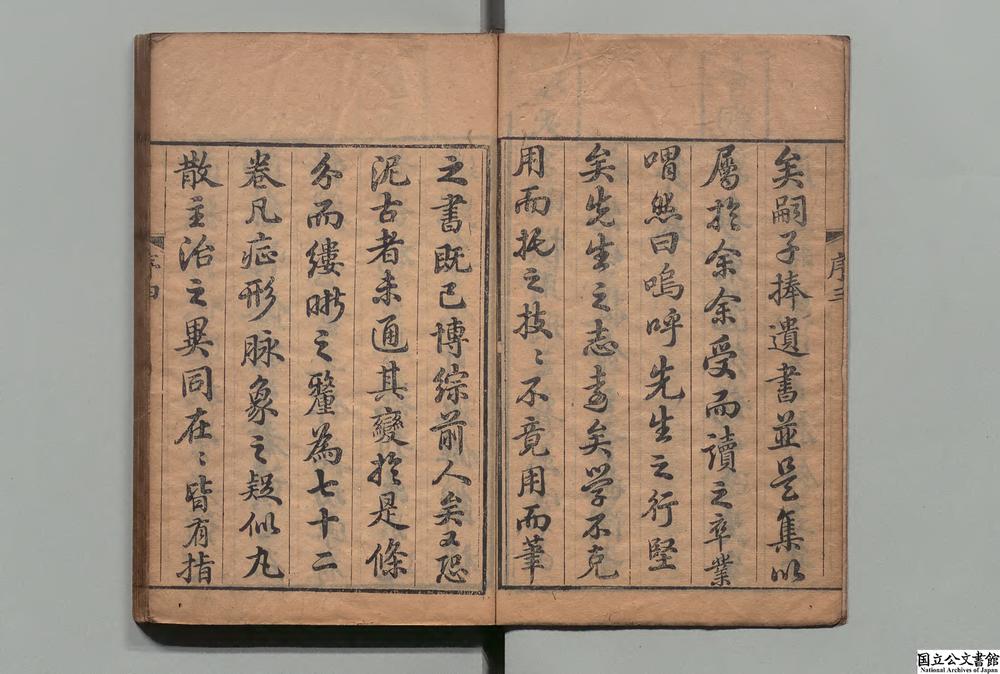 矣嗣子捧遺書並是集以
屬於余余受而讀之卒業
喟然曰嗚呼先生之行堅
矣先生之志袁矣学不克
用而托之技〻不竟用而筆
序三
之書既已博綜前人矣又恐
泥古者未通其變於是條
分而縷晰之釐為七十二
卷凡症形脉象之疑似丸
散主治之異同在〻皆有指
序四
国立公文書館
National Archives of Japan